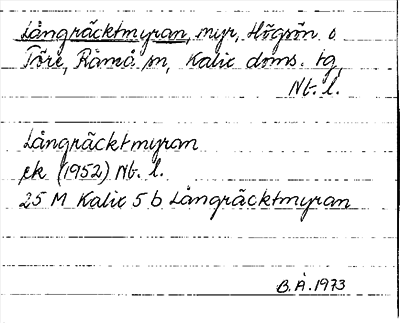 Långräcktmyran, myr, Högsön o
Töre, Råneå sn, Kalix doms. tg
Nb. l.
Långräcktmyran
ek (1952) Nb. l.
25 M Kalix 5 b Långräcktmyran
B. Å. 1973